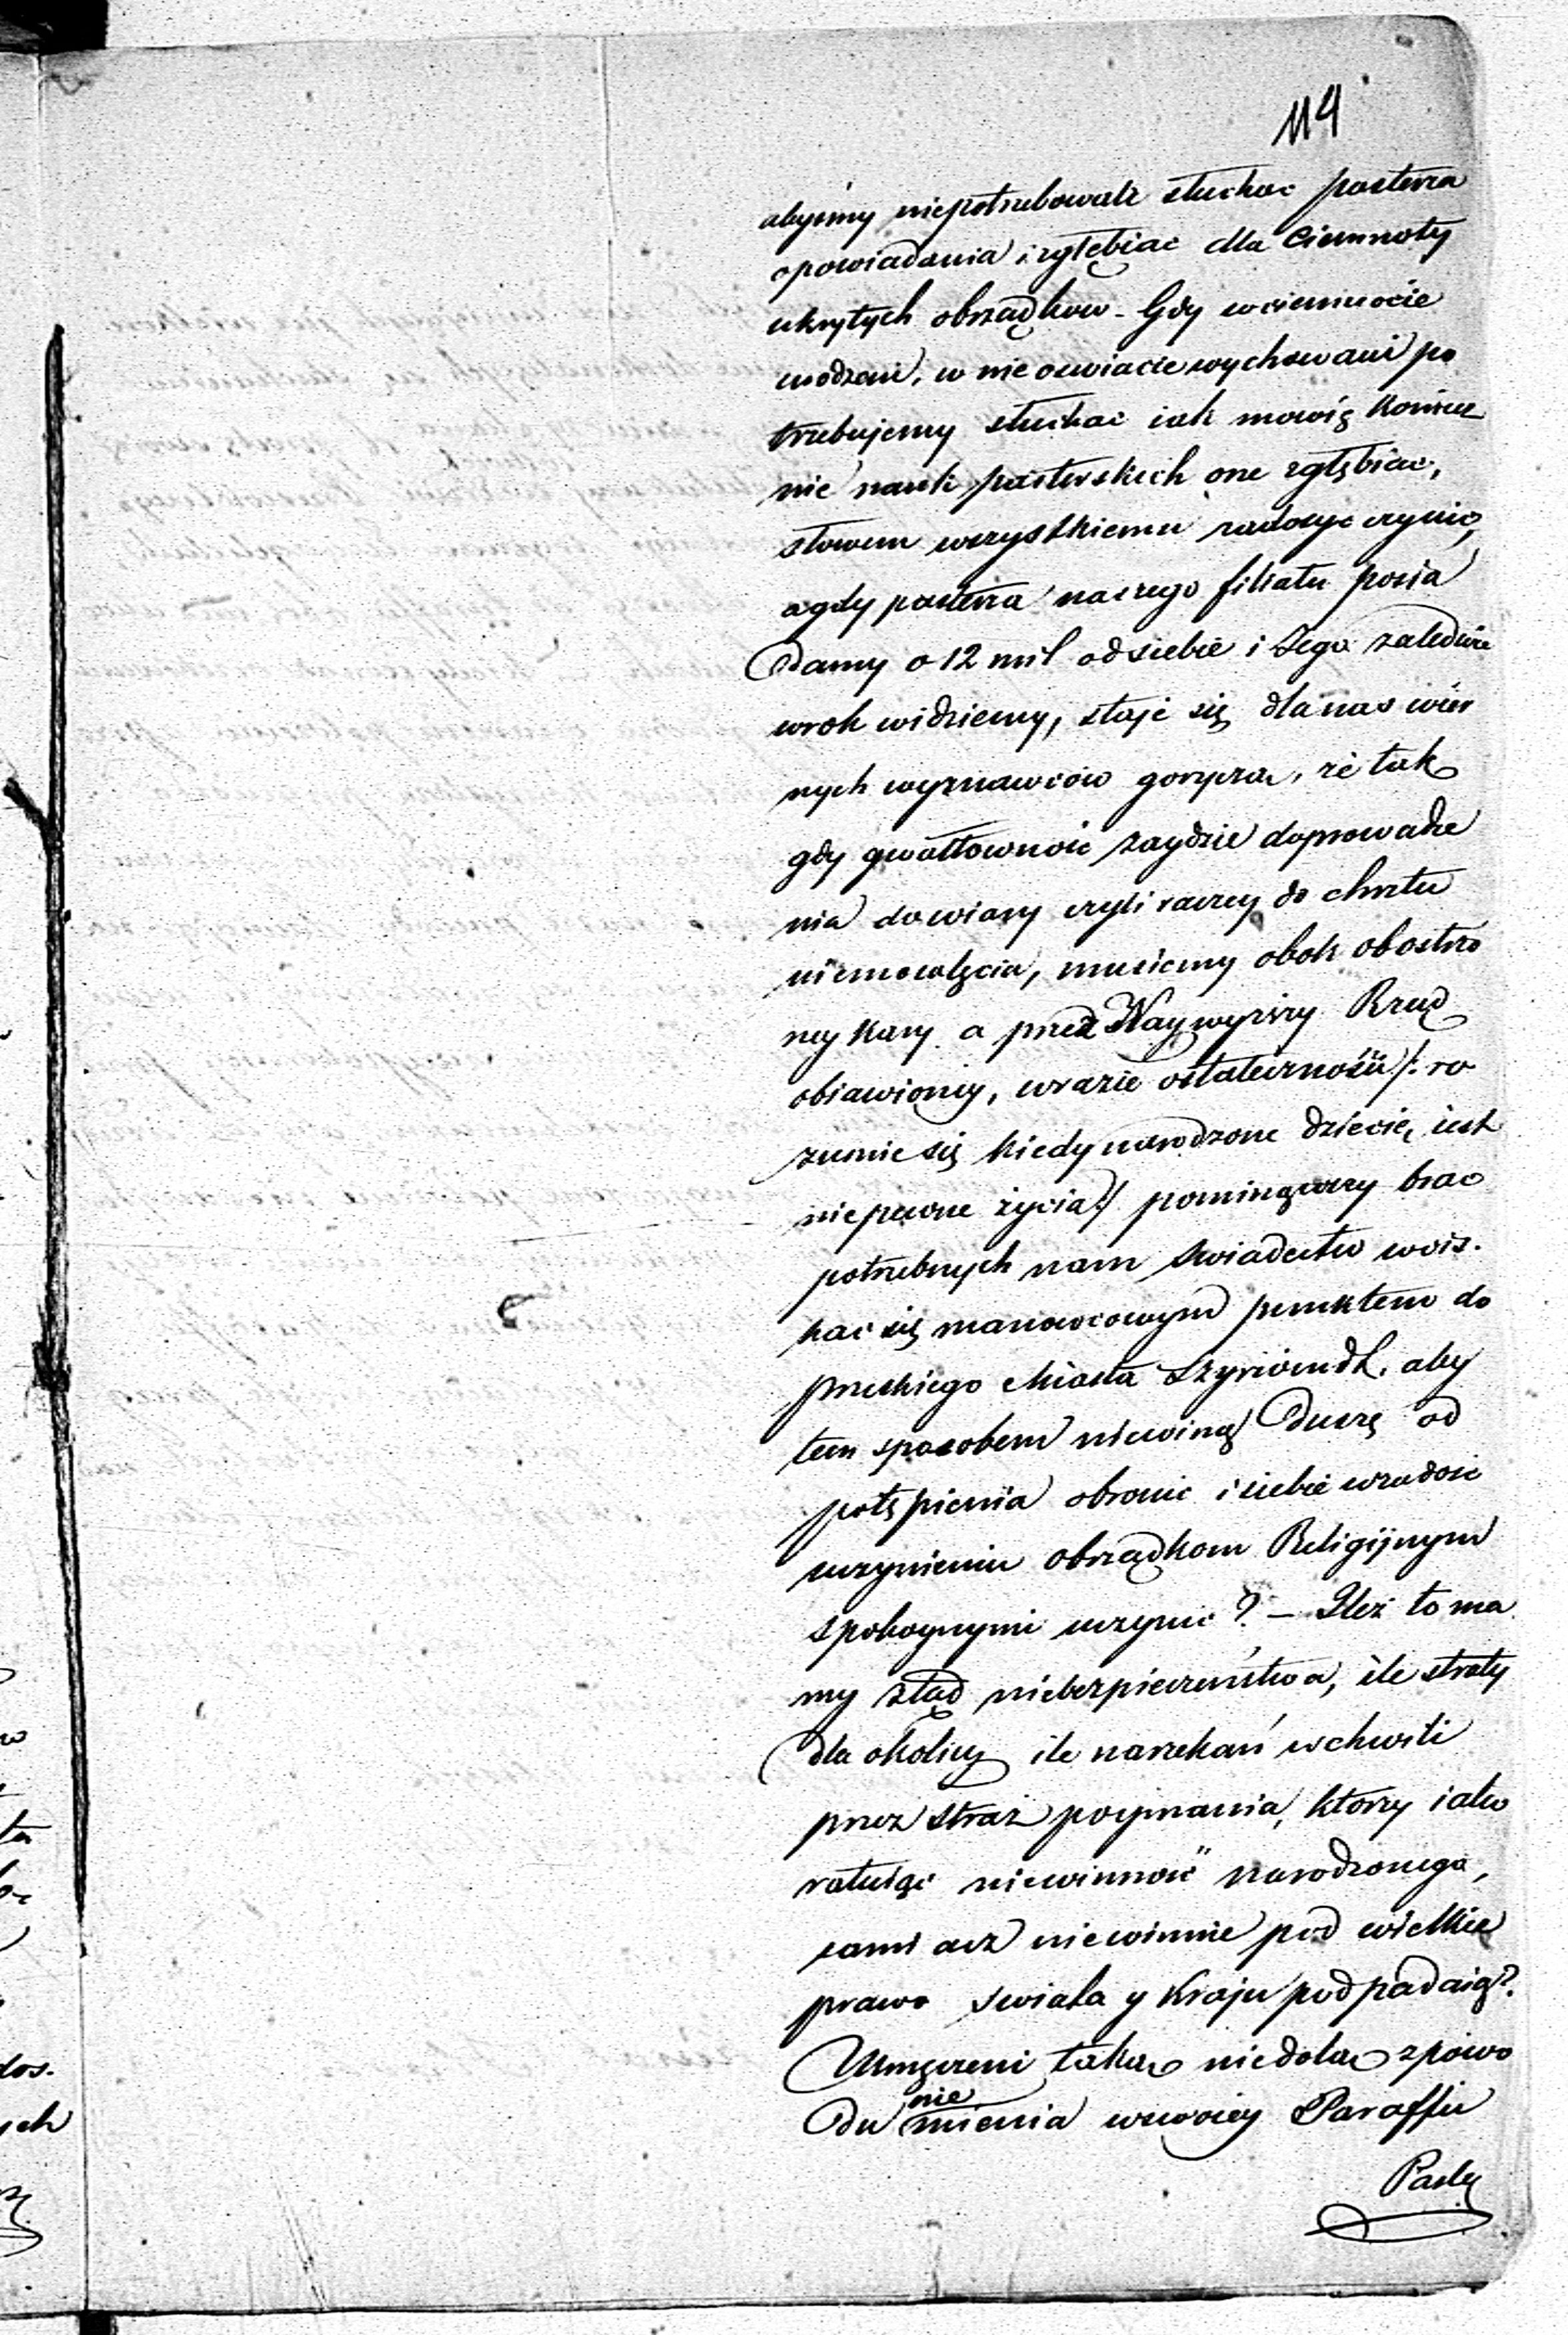 114
abyśmy niepotrzebowali słuchac pasterza
opowiadania i zgłębiac dla Ciemnoty
ukrytych obrządkow - Gdy wciemnocie
urodzeni, w nie oswiacie wychowani po
trzebujemy słuchac iak mowią koniecz
nie nauk pasterskich one zgłębiac,
słowem wszystkiemu zadosyc czynic,
agdy pasterza naszego filiału posia
damy o 12 mil odsiebie i Jego zaledwie
wrok widziemy, staje się dlanas wier
nych wyznawców goryczą, że tak
gdy gwałtownośc zaydzie doprowadze
nia dowiary czyli raczey do chrztu
niemowlęcia, musiemy obok obostrzo
ney kary a przez Naywyższy Rząd
obiawioney, wrazie ostateczności /: ro
zumie się kiedy narodzone dziecie, iest
niepewne życia :/ pominąwszy brac
potrzebnych nam swiadectw wcis-
kac się manowcowym punktem do
pruskiego Miasta Szyrwindt, aby
tem sposobem niewiną Duszę od
potępienia obronic i siebie wzadosc
uczynieniu obrządkom Religijnym
spokoynymi uczynic? - Ileż to ma
my ztąd niebezpieczeństwa, ile straty
dla okolicy ile narzekań wchwili
przez straż poymania, ktorzy iako
ratuiąc niewinnośc narodzonego,
sami acz niewinnie pod wielkie
prawo swiata y Kraju podpadaią?
Umęczeni taką niedolą zpowo
du nie mienia wswoiey Paraffii
Pasty